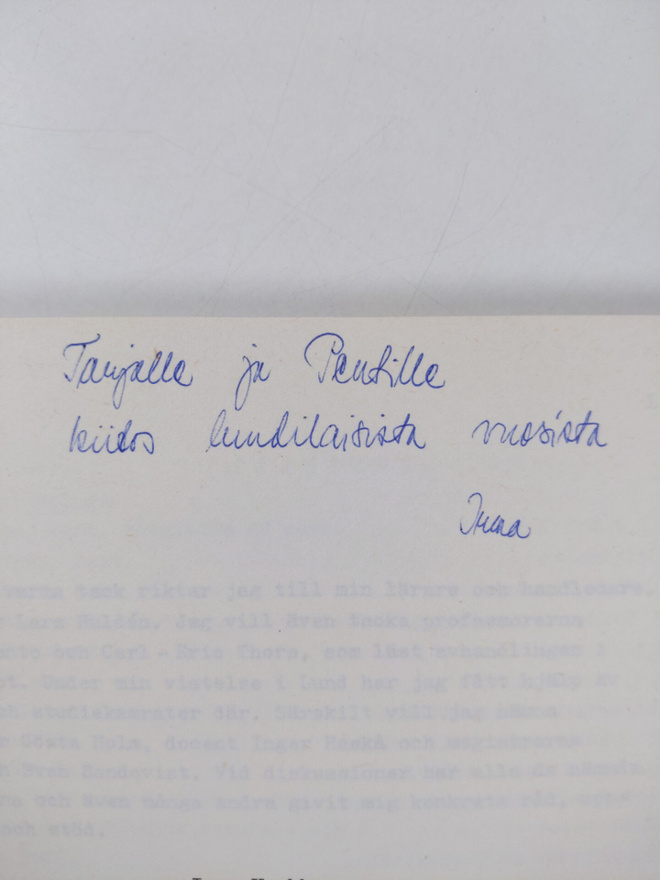 Tarjalle ja Pentille
kiitos lundilaisista vuosista
Irma
varma tack riktar jag till min lärare och handledare,
Lars Huldén. Jag vill även tacka professorerna
och Carl-Eric Thors, som läst avhandlingen i
Under min vistelse i Lund har jag fått hjälp av
studiekamrater där. Särskilt vill jag nämna
Gösta Holm, docent Inger och magistrarna
Sven Vid diskussioner har alla de nämnda
och även många andra givit mig konkreta råd,
och stöd.